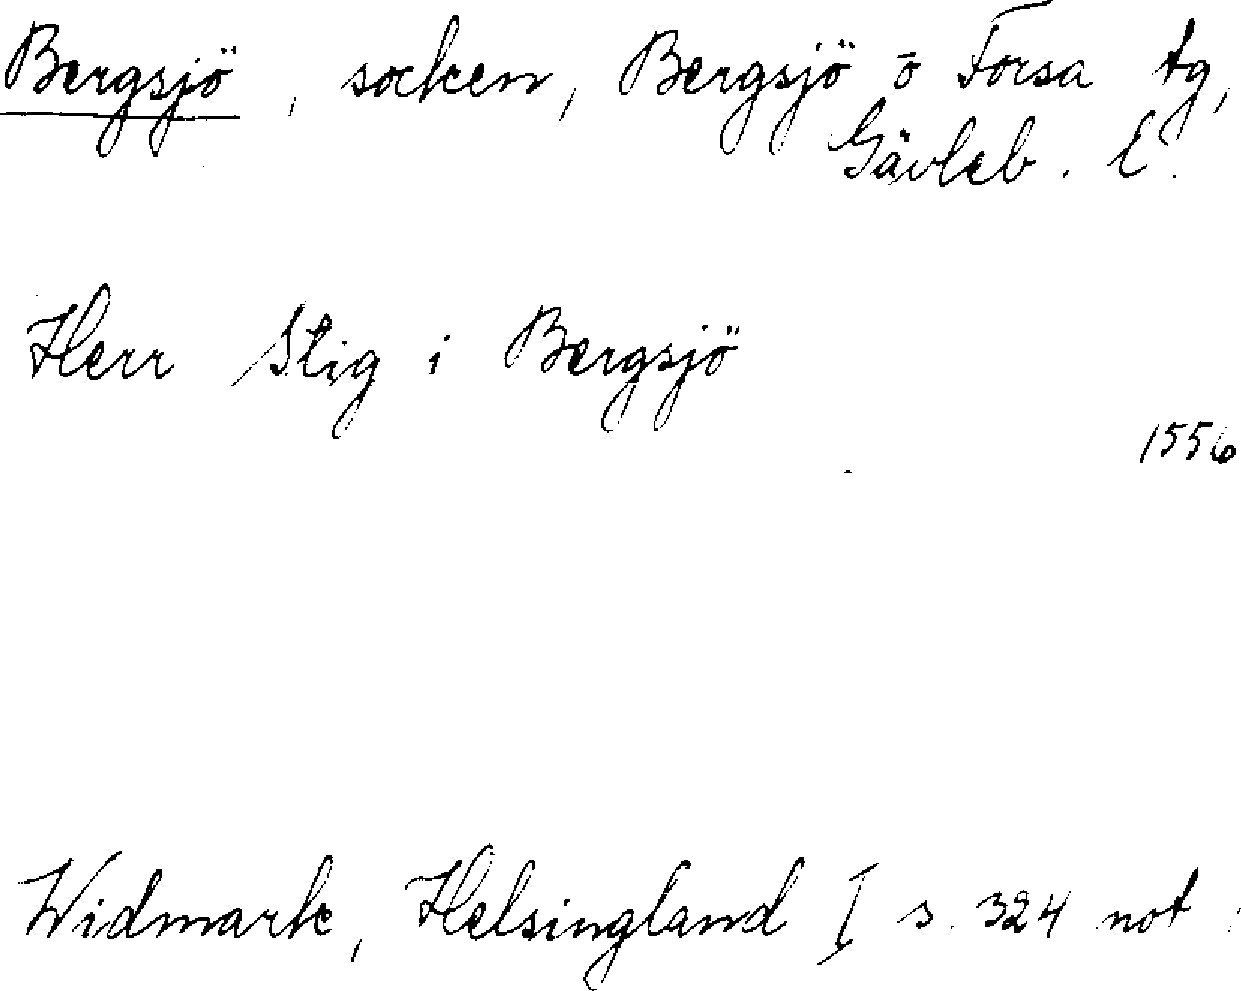 Bergsjö, socken, Bergsjö o Forsa tg,
Gävleb. l.
Herr Stig i Bergsjö
1556
Widmark, Helsingland I s. 324 not.